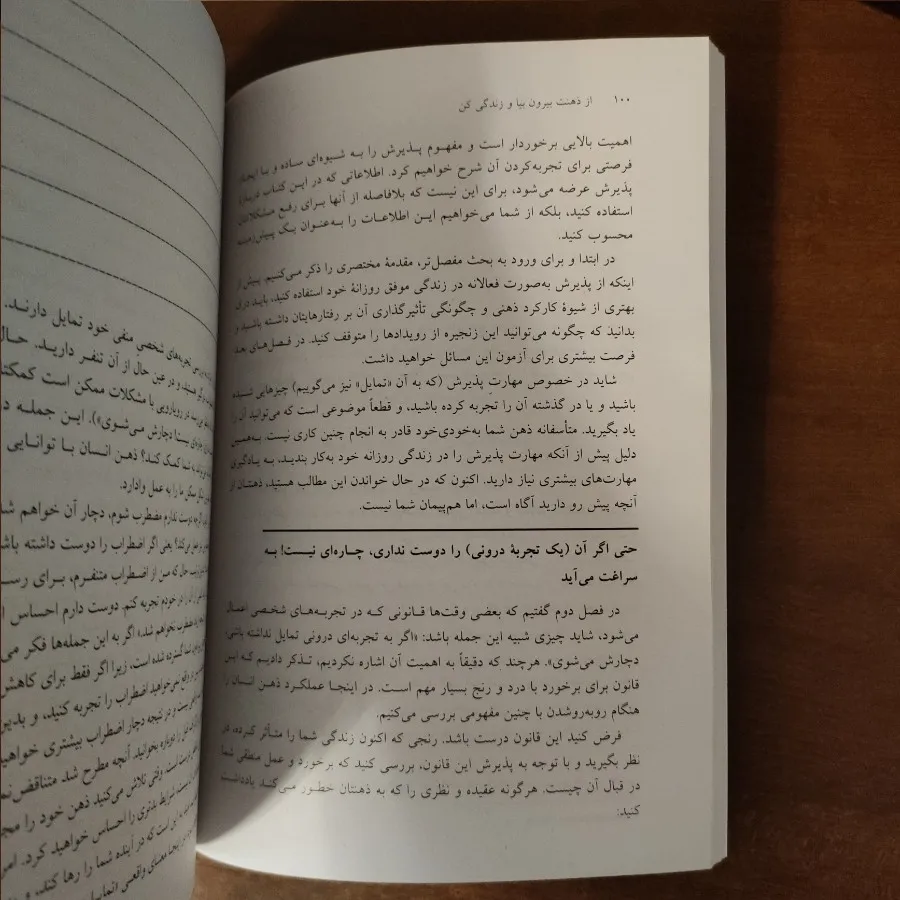 ۱۰۰ از ذهنت بیرون بیا و زندگی کن
اهمیت بالایی برخوردار است و مفهوم پذیرش را به شیوه‌ای ساده و با ایجاد
فرصتی برای تجربه‌کردن آن شرح خواهیم کرد. اطلاعاتی که در این کتاب دربارهٔ
پذیرش عرضه می‌شود، برای این نیست که بلافاصله از آنها برای رفع مشکلاتتان
استفاده کنید، بلکه از شما می‌خواهیم این اطلاعات را به‌عنوان یک پیش‌زمینه
محسوب کنید.
در ابتدا و برای ورود به بحث مفصل‌تر، مقدمهٔ مختصری را ذکر می‌کنیم. پیش از
اینکه از پذیرش به‌صورت فعالانه در زندگی موفق روزانهٔ خود استفاده کنید، باید درک
بهتری از شیوهٔ کارکرد ذهنی و چگونگی تأثیرگذاری آن بر رفتارهایتان داشته باشید و
بدانید که چگونه می‌توانید این زنجیره از رویدادها را متوقف کنید. در فصل‌های بعد
فرصت بیشتری برای آزمون این مسائل خواهید داشت.
شاید در خصوص مهارتِ پذیرش (که به آن «تمایل» نیز می‌گوییم) چیزهایی شنیده
باشید و یا در گذشته آن را تجربه کرده باشید، و قطعاً موضوعی است که می‌توانید آن را
یاد بگیرید. متأسفانه ذهن شما به‌خودی‌خود قادر به انجام چنین کاری نیست. به‌همین
دلیل پیش از آنکه مهارت پذیرش را در زندگی روزانه خود به‌کار بندید، به یادگیری
مهارت‌های بیشتری نیاز دارید. اکنون که در حال خواندن این مطالب هستید، ذهنتان از
آنچه پیش رو دارید آگاه است، اما هم‌پیمان شما نیست.
حتی اگر آن (یک تجربهٔ درونی) را دوست نداری، چاره‌ای نیست! به
سراغت می‌آید
در فصل دوم گفتیم که بعضی وقت‌ها قانونی که در تجربه‌های شخصی اعمال
می‌شود، شاید چیزی شبیه این جمله باشد: «اگر به تجربه‌ای درونی تمایل نداشته باشی،
دچارش می‌شوی». هرچند که دقیقاً به اهمیت آن اشاره نکردیم، تذکر دادیم که این
قانون برای برخورد با درد و رنج بسیار مهم است. در اینجا عملکرد ذهن انسان را
هنگام روبه‌روشدن با چنین مفهومی بررسی می‌کنیم.
فرض کنید این قانون درست باشد. رنجی که اکنون زندگی شما را متأثر کرده، در
نظر بگیرید و با توجه به پذیرش این قانون، بررسی کنید که برخورد و عمل منطقی شما
در قبال آن چیست. هرگونه عقیده و نظری را که به ذهنتان خطور می‌کند یادداشت
کنید:
تجربه‌های شخصیِ منفی خود تمایل دارند.
و در عین حال از آن تنفر دارید. حال
در رویارویی با مشکلات ممکن است
دچارش می‌شوی»). این جمله
به شما کمک کند؟ ذهن انسان با توانایی
ما را به عمل وادارد.
دوست ندارم مضطرب شوم، دچار آن خواهم
یعنی اگر اضطراب را دوست داشته
حال که من از اضطراب متنفرم، برای
را در خودم تجربه کنم. دوست دارم احساس
مضطرب نخواهم شد.» اگر به این جمله‌ها فکر
گسترده شده است، زیرا اگر فقط برای کاهش
نمی‌خواهید اضطراب را تجربه کنید، و
و در نتیجه دچار اضطراب بیشتری
را دوباره بخوانید. آنچه مطرح شد
است. وقتی تلاش می‌کنید ذهن خود را
شرایط بدتری را احساس خواهید کرد.
این است که در آینده شما را رها کند، و
معنای واقعی